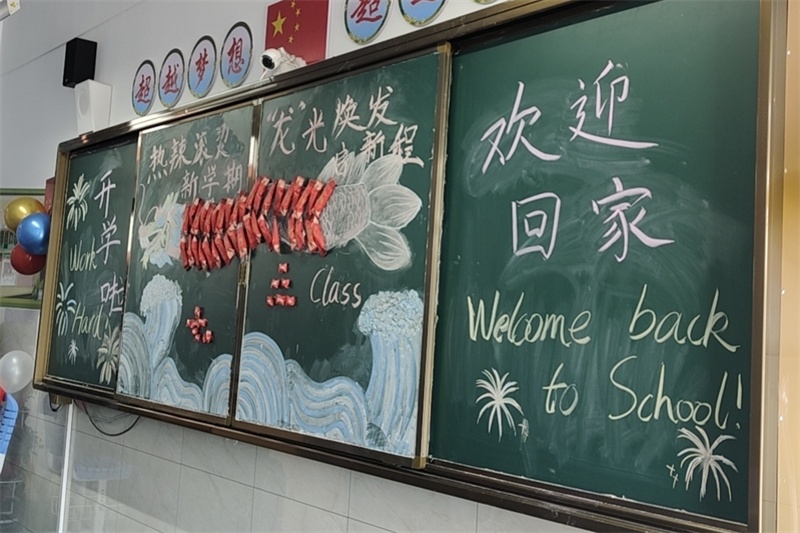 超越梦想
超
开学啦
Work
Hard
热辣滚烫
新学期
"龙"光焕发
启新程
Class
欢迎
回家
Welcome back
to School!